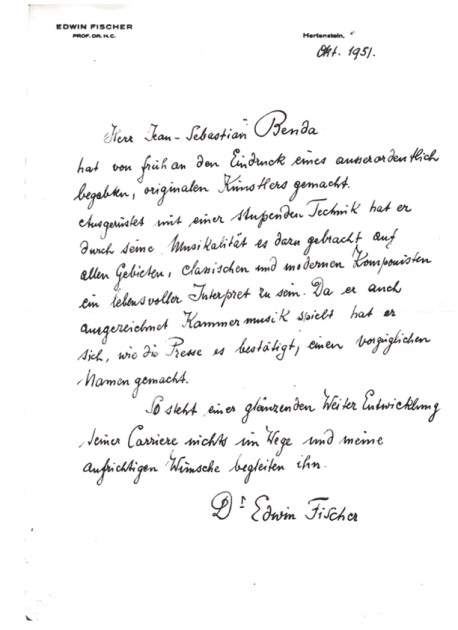 EDWIN FISCHER
PROF. DR. H.C.
Hertenstein,
Okt. 1951.
Herr Jean-Sebastian Benda
hat von früh an den Eindruck eines ausserordentlich
begabten, originalen Künstlers gemacht.
Ausgerüstet mit einer stupenden Technik hat er
durch seine Musikalität es dazu gebracht auf
allen Gebieten, classischen und modernen Komponisten
ein lebensvoller Interpret zu sein. Da er auch
ausgezeichnet Kammermusik spielt hat er
sich, wie die Presse es bestätigt, einen vorzüglichen
Namen gemacht.
So steht einer glänzenden Weiter Entwicklung
seiner Carriere nichts im Wege und meine
aufrichtigen Wünsche begleiten ihn.
Dr Edwin Fischer